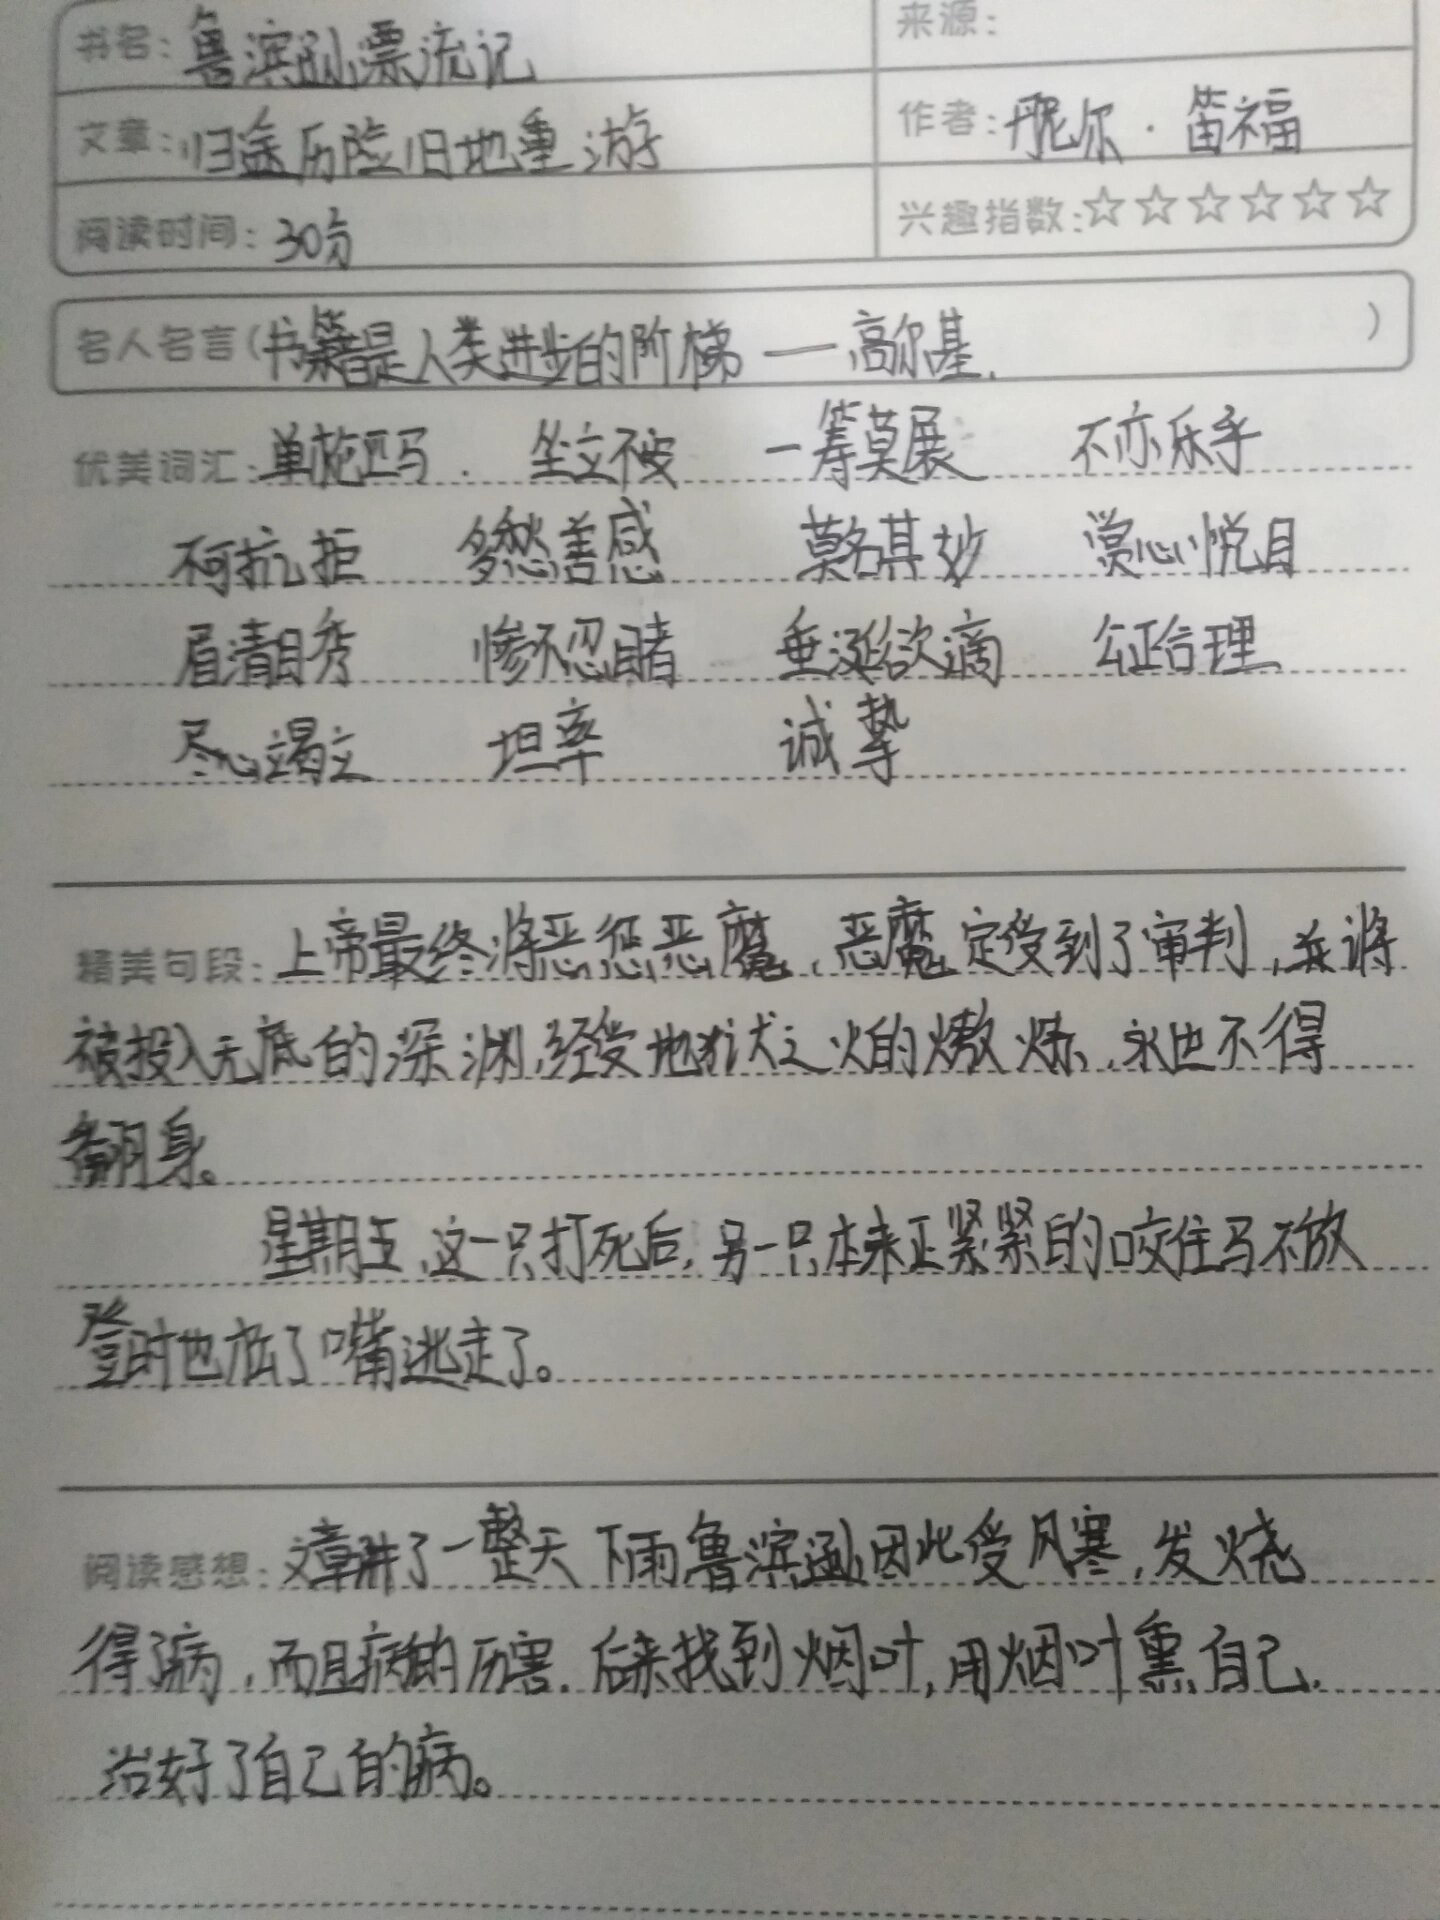 书名: 鲁滨逊漂流记 来源:
文章: 归途历险旧地重游 作者: 丹尼尔·笛福
阅读时间: 30分 兴趣指数: ☆☆☆☆☆☆
名人名言(书籍是人类进步的阶梯 — 高尔基. )
优美词汇: 单枪匹马. 坐立不安 一筹莫展 不亦乐乎
不可抗拒 多愁善感 莫名其妙 赏心悦目
眉清目秀 惨不忍睹 垂涎欲滴 公正合理
尽心竭立 坦率 诚挚
精美句段: 上帝最终将恶惩恶魔,恶魔定受到了审判,并将
被投入无底的深渊,经受地狱之火的熬炼,永世不得
翻身。
星期五,这一只打死后,另一只本来正紧紧的咬住马不放
登时也松了嘴逃走了。
阅读感想: 文章讲了一整天下雨鲁滨逊因此受风寒,发烧
得了病,而且病的历害.后来找到烟叶,用烟叶熏自己.
治好了自己的病。